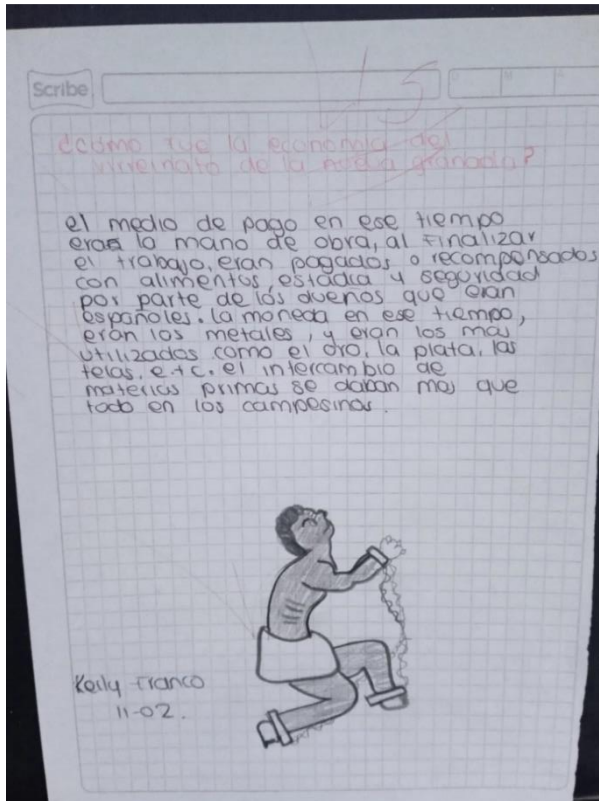 Scribe
15
¿cómo fue la economia del
virreinato de la nueva granada?
el medio de pago en ese tiempo
eras la mano de obra, al finalizar
el trabajo, eran pagados o recompensados
con alimentos, estadia y seguridad
por parte de los dueños que eran
españoles. la moneda en ese tiempo,
eran los metales, y eran los más
utilizados como el oro, la plata, las
telas, etc. el intercambio de
materias primas se daban mas que
todo en los campesinos.
Keily Franco
11-02.